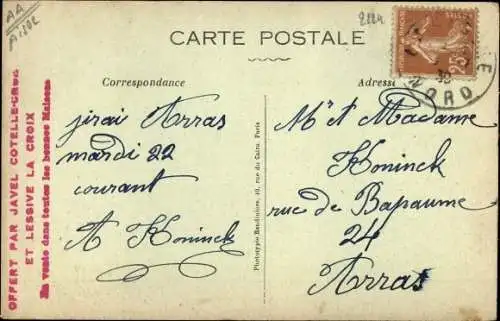 AA
2224
CARTE POSTALE
Correspondance
Adresse
jirai Arras
mardi 22
courant
A Koninck
Mr et Madame
Koninck
rue de Bapaume
24
Arras
OFFERT PAR JAVEL COTELLE-CROIX
ET LESSIVE LA CROIX
En vente dans toutes les bonnes Maisons
Phototypie Baudinière, rue du Caire, Paris
25c
NORD